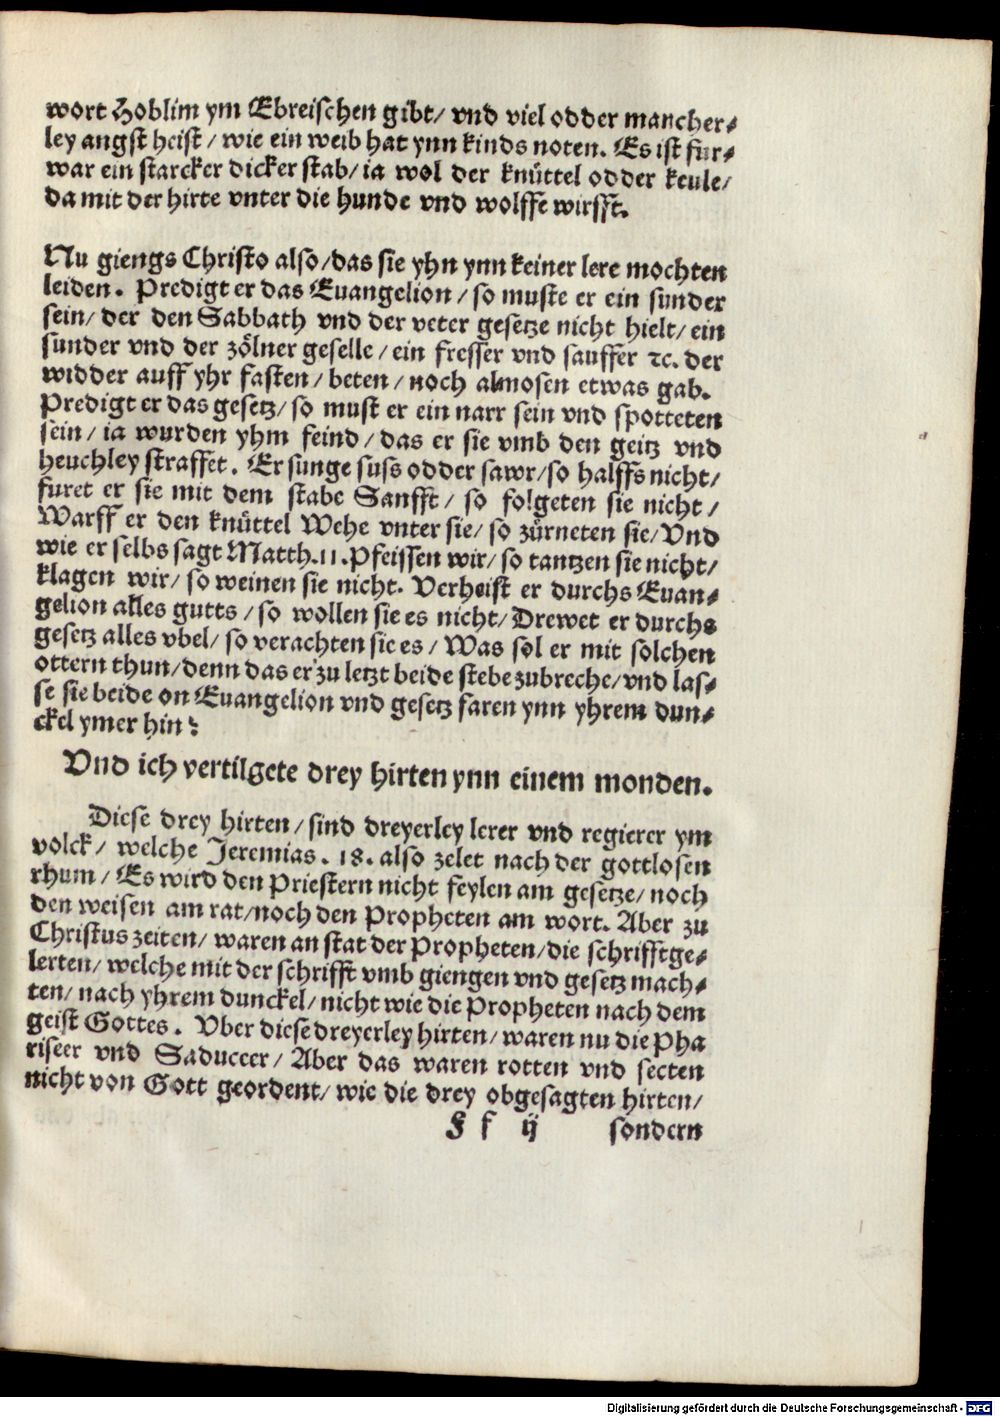 wort Hoblim ym Ebreischen gibt/ vnd viel odder mancher-
ley angst heist/ wie ein weib hat ynn kinds noten. Es ist fur-
war ein starcker dicker stab/ ia wol der knüttel odder keule/
da mit der hirte vnter die hunde vnd wolffe wirfft.
Nu giengs Christo also/das sie yhn ynn keiner lere mochten
leiden. Predigt er das Euangelion/ so muste er ein sunder
sein/ der den Sabbath vnd der veter gesetze nicht hielt/ ein
sunder vnd der zölner geselle/ ein fresser vnd sauffer ꝛc. der
widder auff yhr fasten/ beten/ noch almosen etwas gab.
Predigt er das gesetz/ so must er ein narr sein vnd spotteten
sein/ ia wurden yhm feind/ das er sie vmb den geitz vnd
heuchley straffet. Er sunge suss odder sawr/so halffs nicht/
furet er sie mit dem stabe Sanfft/ so folgeten sie nicht/
Warff er den knüttel Wehe vnter sie/ so zürneten sie/ Vnd
wie er selbs sagt Matth.11. Pfeiffen wir/ so tantzen sie nicht/
klagen wir/ so weinen sie nicht. Verheist er durchs Euan-
gelion alles gutts/ so wollen sie es nicht/ Drewet er durchs
gesetz alles vbel/ so verachten sie es/ Was sol er mit solchen
ottern thun/denn das er zu letzt beide stebe zubreche/vnd las-
se sie beide on Euangelion vnd gesetz faren ynn yhrem dun-
ckel ymer hin?
Vnd ich vertilgete drey hirten ynn einem monden.
Diese drey hirten/ sind dreyerley lerer vnd regierer ym
volck/ welche Jeremias. 18. also zelet nach der gottlosen
rhum/ Es wird den Priestern nicht feylen am gesetze/ noch
den weisen am rat/noch den Propheten am wort. Aber zu
Christus zeiten/ waren an stat der Propheten/die schrifftge-
lerten/ welche mit der schrifft vmb giengen vnd gesetz mach-
ten/ nach yhrem dunckel/ nicht wie die Propheten nach dem
geist Gottes. Vber diese dreyerley hirten/ waren nu die Pha
riseer vnd Saduceer/ Aber das waren rotten vnd secten
nicht von Gott geordent/ wie die drey obgesagten hirten/
F f ij sondern
Digitalisierung gefördert durch die Deutsche Forschungsgemeinschaft - DFG